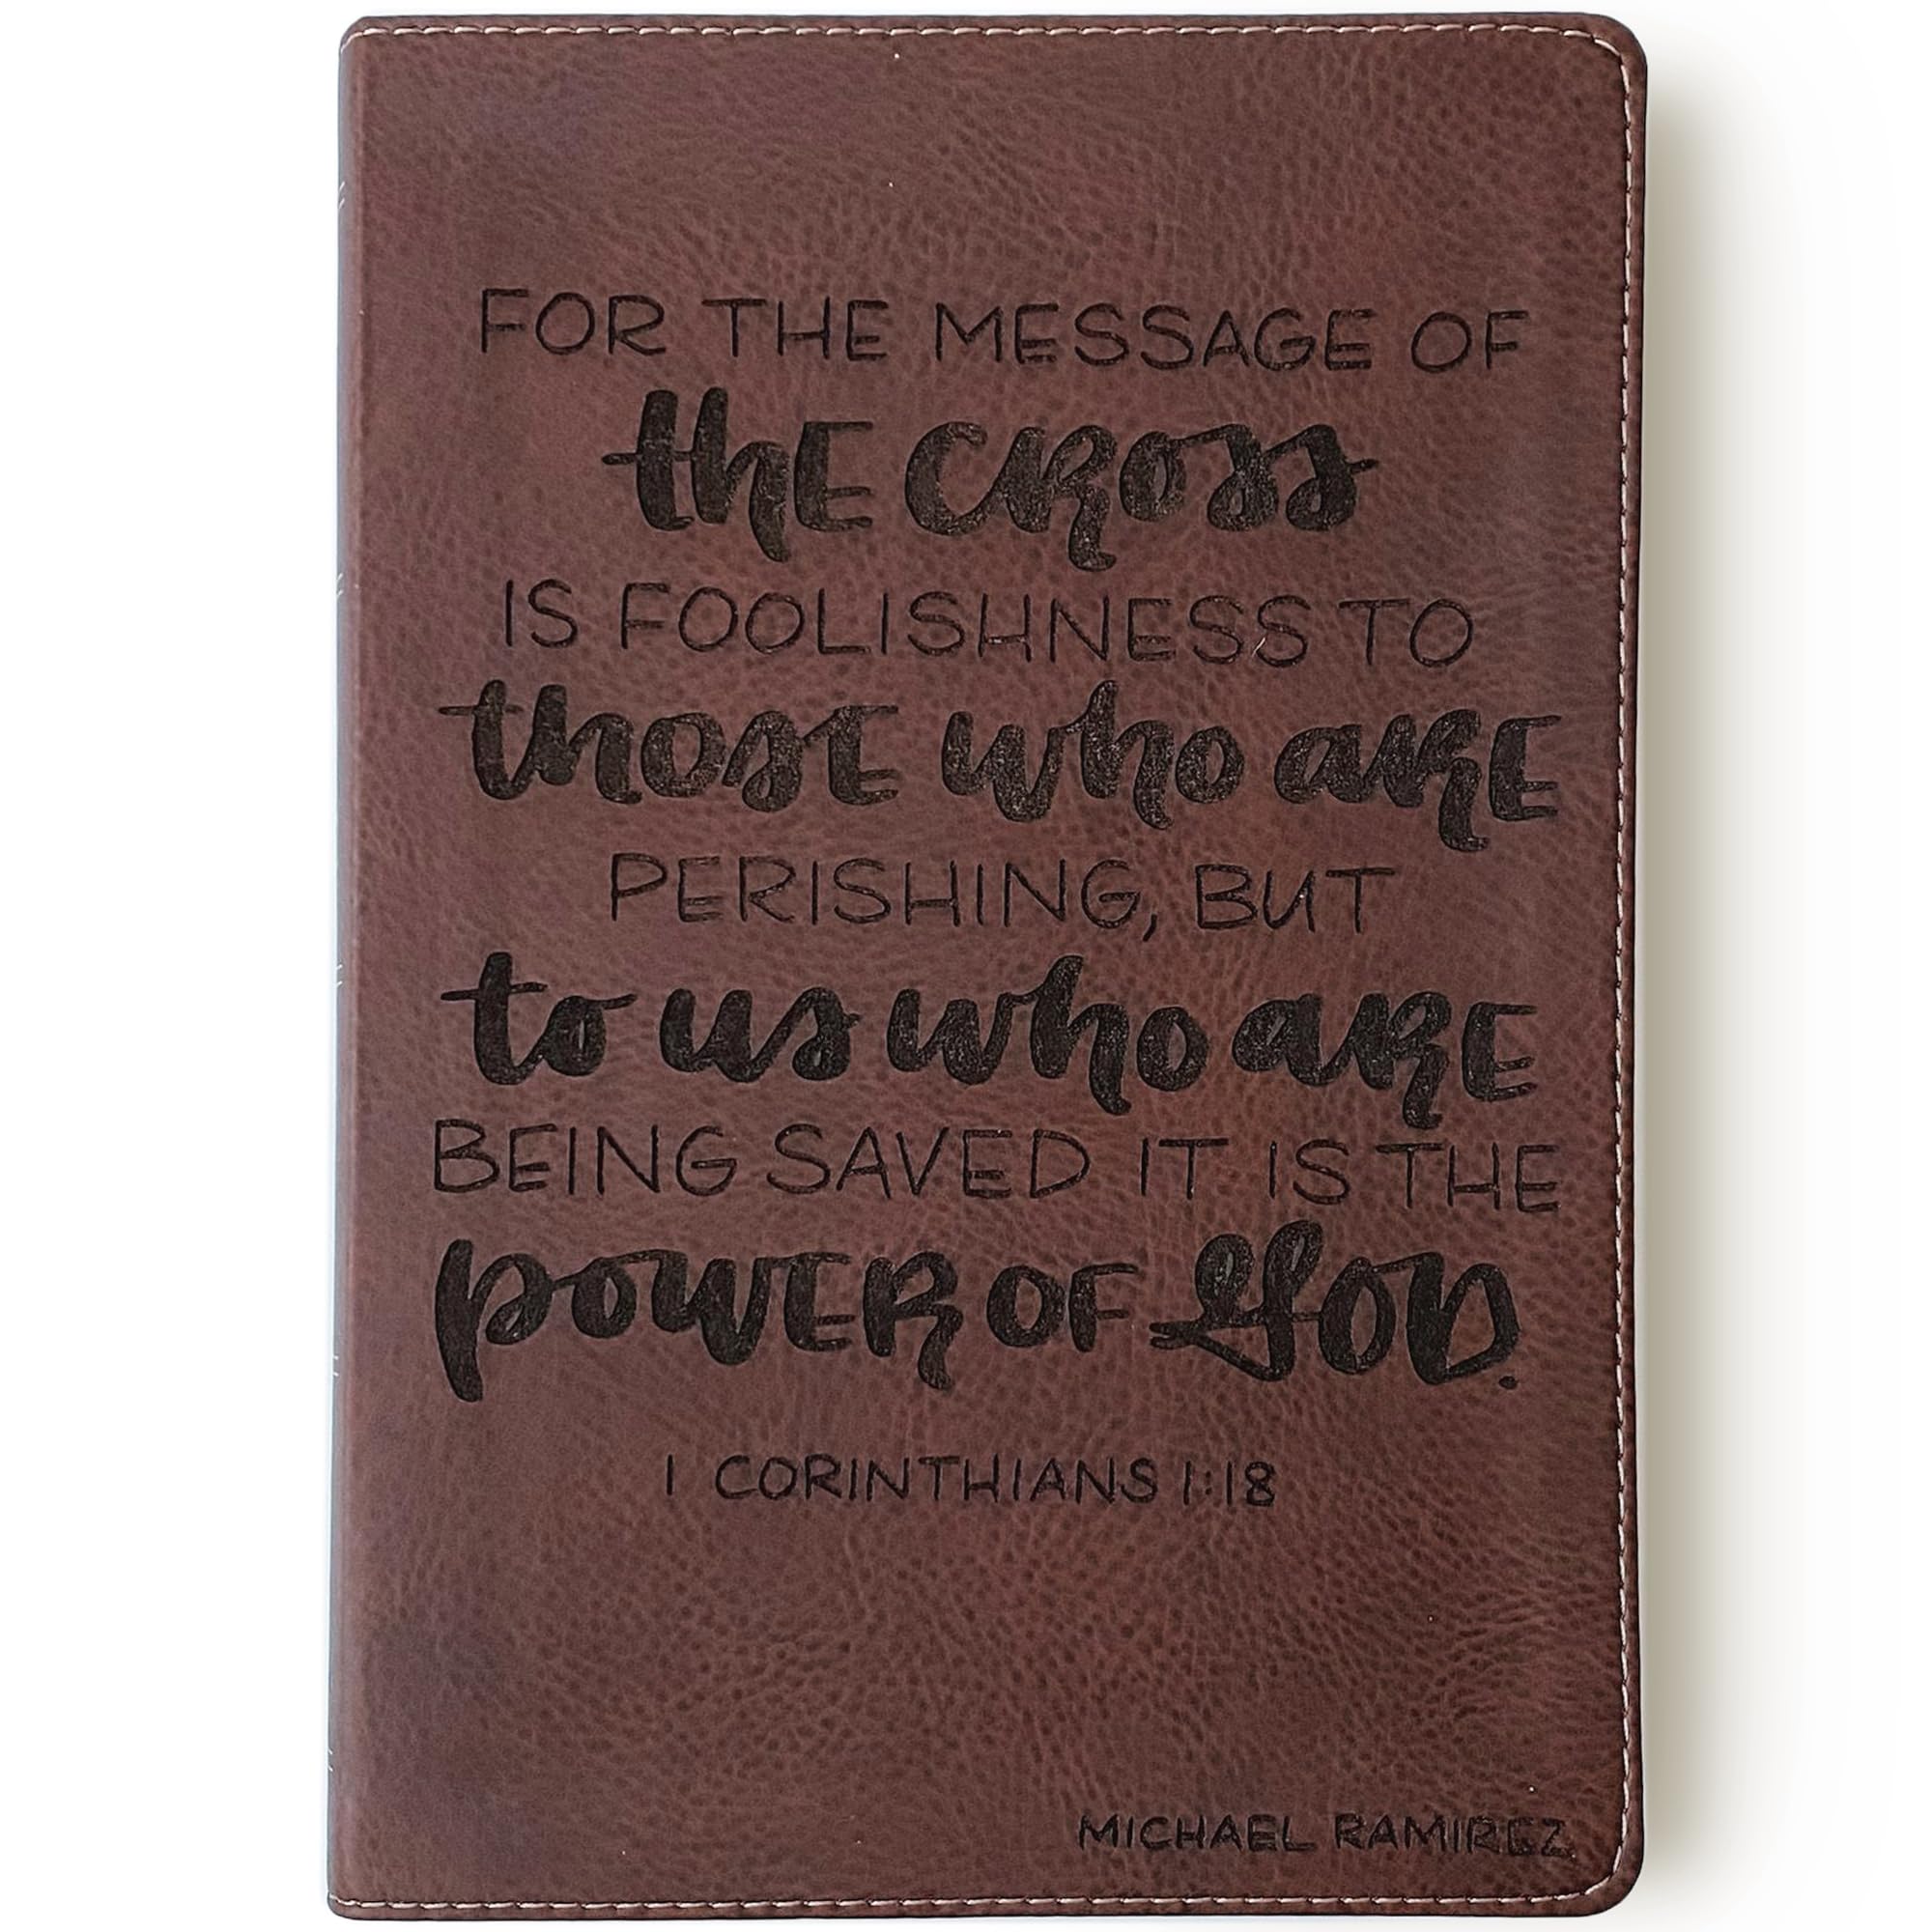 FOR THE MESSAGE OF
thE CROSS
IS FOOLISHNESS TO
thosE who aRE
PERISHING, BUT
to us who aRE
BEING SAVED IT IS THE
poWER OF GOD.
1 CORINTHIANS 1:18
MICHAEL RAMIREZ